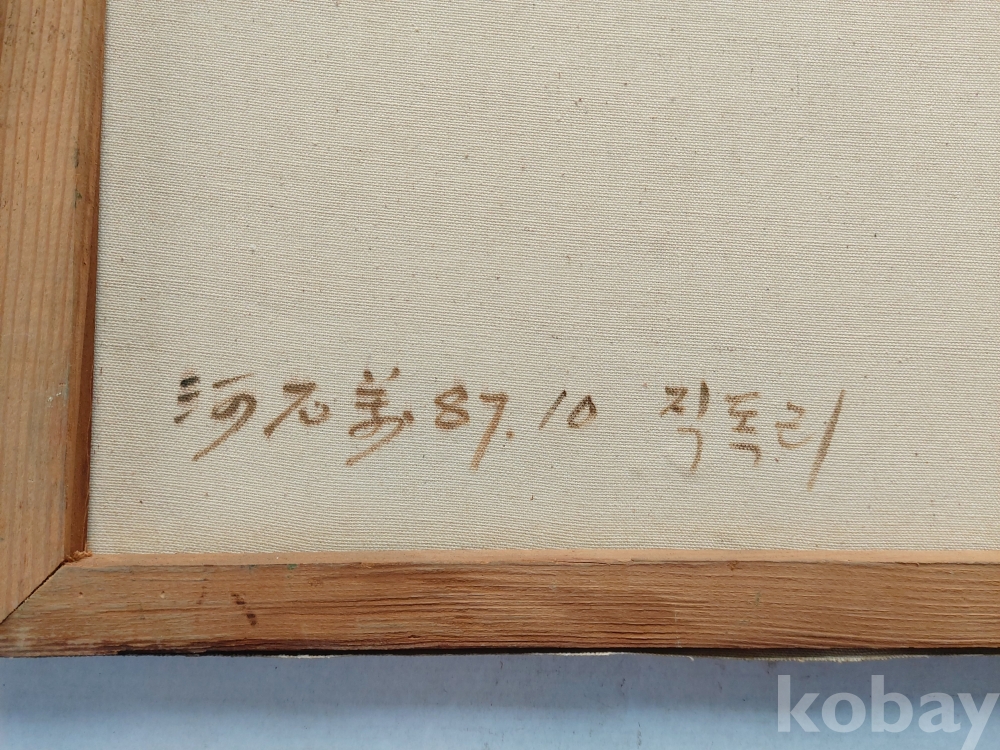 河石 87.10 직독리
kobay